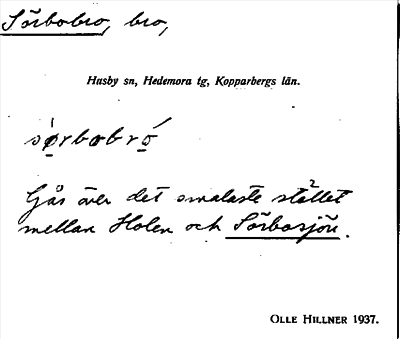 Sörbobro, bro,
Husby sn, Hedemora tg, Kopparbergs län.
sörbobro
Går över det smalaste stället
mellan Holen och Sörbosjön.
OLLE HILLNER 1937.